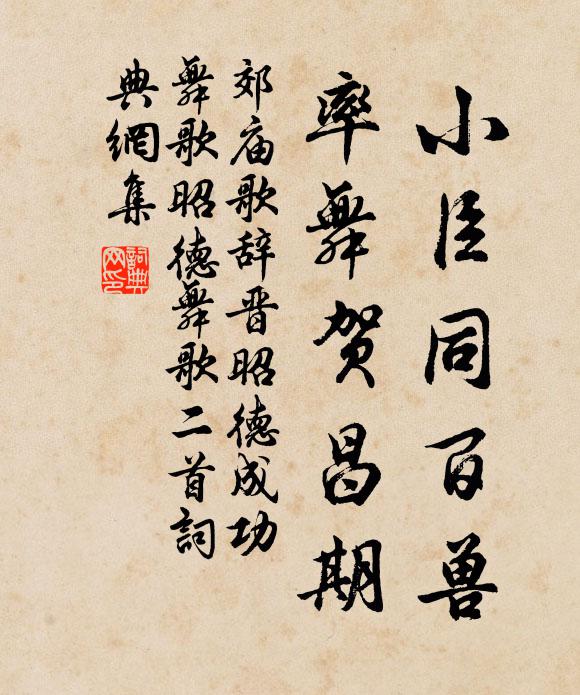 小臣同百兽
率舞贺昌期
郊庙歌辞晋昭德成功
舞歌昭德舞歌二首詞
典網集
詞典网印